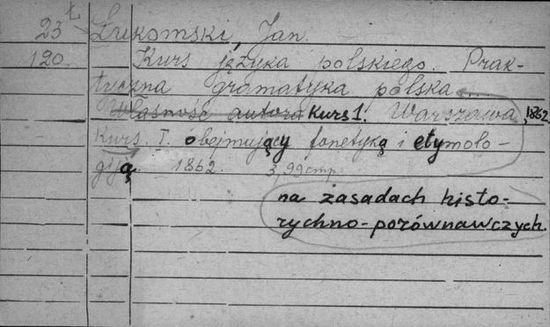 23 Ł Łukomski, Jan.
120. Kurs języka polskiego. Prak-
tyczna gramatyka polska
Własność autora Kurs 1. Warszawa, 1862
Kurs. I. obejmujący fonetykę i etymolo-
giją 1862. 3, 99
na zasadach histo-
rychno-porównawczych.